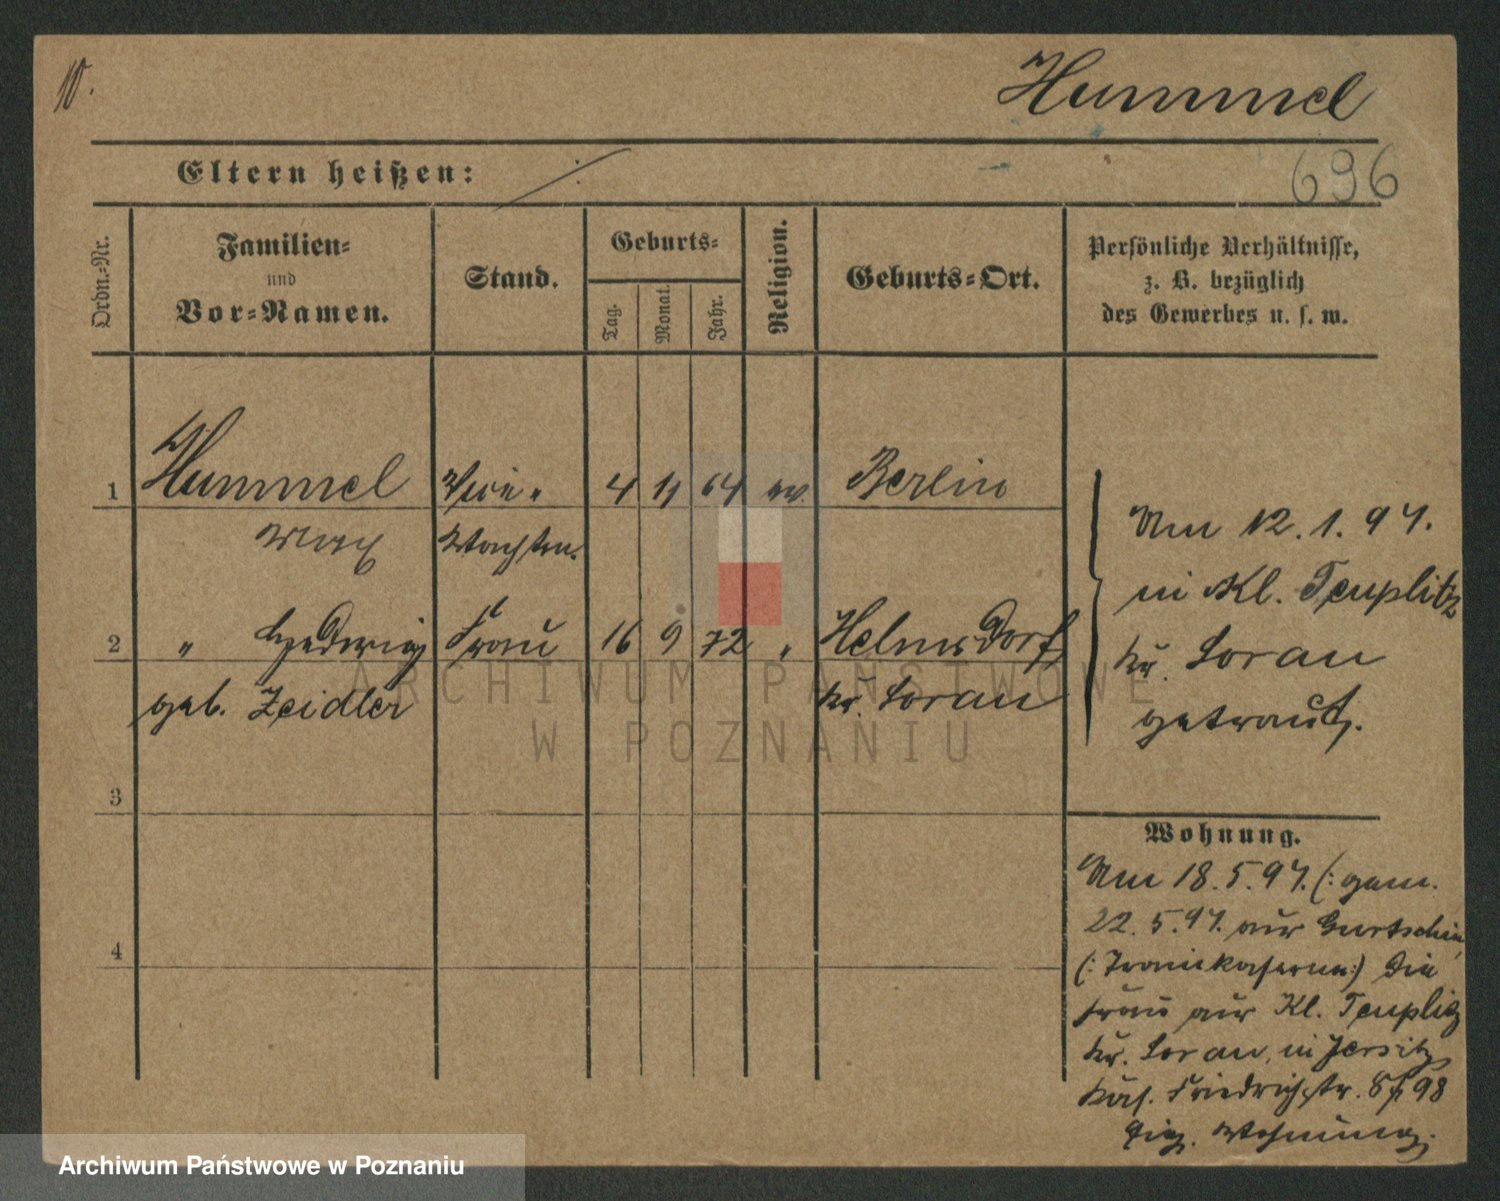 10.
Hummel
Eltern heißen: ./.
696
Ordn.-Nr.
Familien-
und
Vor-Namen.
Stand.
Geburts-
Tag.
Monat.
Jahr.
Religion.
Geburts-Ort.
Persönliche Verhältnisse,
z. B. bezüglich
des Gewerbes u. s. w.
1 Hummel Vice- 4 11 64 ev. Berlin
Max Wachtm.
2 " Hedwig Frau 16 9 72 " Helmsdorf,
geb. Zeidler Kr. Sorau
3
4
Am 12.1.97.
in Kl. Teuplitz
Kr. Sorau
getraut.
Wohnung.
Am 18.5.97. (: gem.
22.5.97. aus Gurtschin
(: Trainkaserne:) die
Frau aus Kl. Teuplitz
Kr. Sorau, in Jersitz
Kais. Friedrichstr.
Eig. Wohnung.
ARCHIWUM PAŃSTWOWE
W POZNANIU
Archiwum Państwowe w Poznaniu